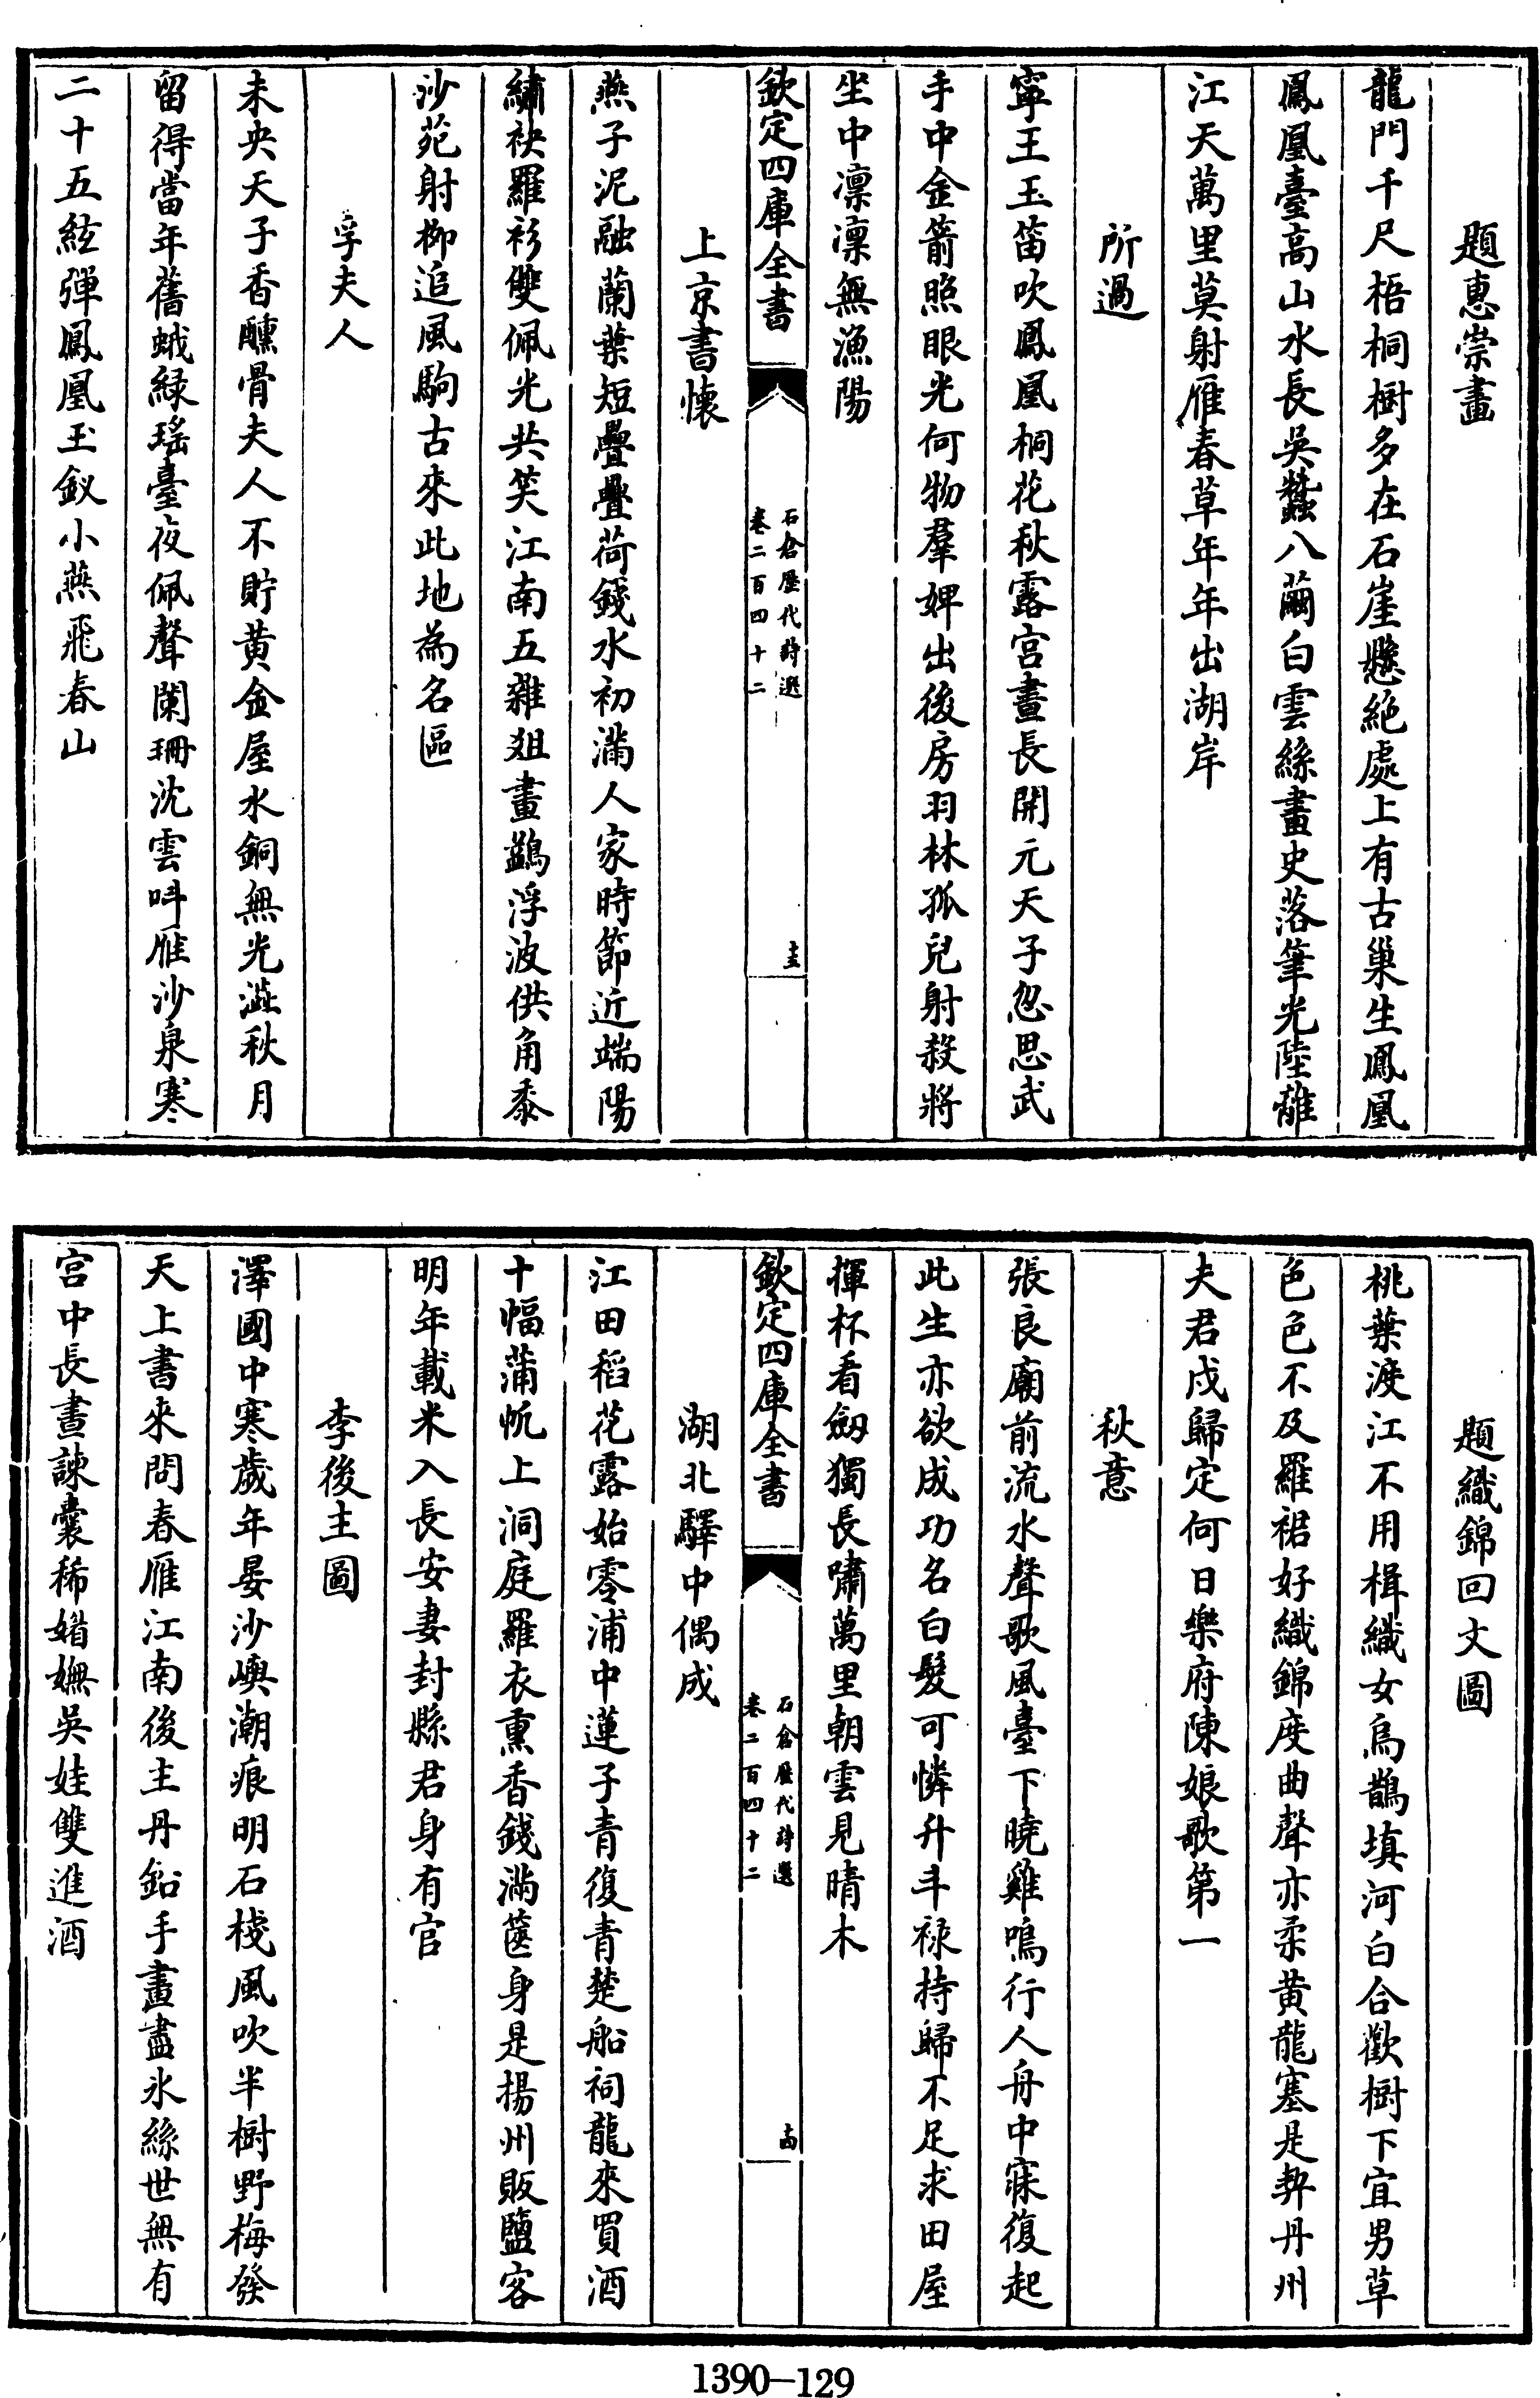 題惠崇畫
龍門千尺梧桐樹多在石崖懸絶處上有古巢生鳳凰
鳳凰臺高山水長吳蠶八繭白雲絲畫史落筆光陸離
江天萬里莫射雁春草年年出湖岸
所過
寧王玉笛吹鳳凰桐花秋露宫晝長開元天子忽思武
手中金箭照眼光何物羣婢出後房羽林孤兒射殺將
坐中凛凛無漁陽
欽定四庫全書
石倉歷代詩選
卷二百四十二
十三
上京書懷
燕子泥融蘭葉短疊疊荷錢水初滿人家時節近端陽
繡袂羅衫雙佩光共笑江南五雜俎畫鷁浮波供角黍
沙苑射栁追風駒古來此地為名區
李夫人
未央天子香醺骨夫人不貯黄金屋水銅無光澁秋月
留得當年舊蛾緑瑤臺夜佩聲闌珊沈雲呌雁沙泉寒
二十五絃彈鳳凰玉釵小燕飛春山
題織錦回文圖
桃葉渡江不用楫織女烏鵲填河白合歡樹下宜男草
色色不及羅裙好織錦度曲聲亦柔黄龍塞是契丹州
夫君戍歸定何日樂府陳娘歌第一
秋意
張良廟前流水聲歌風臺下曉雞鳴行人舟中寐復起
此生亦欲成功名白髮可憐升斗禄持歸不足求田屋
揮杯看劒獨長嘯萬里朝雲見晴木
欽定四庫全書
石倉歷代詩選
卷二百四十二
十四
湖北驛中偶成
江田稻花露始零浦中蓮子青復青楚船祠龍來買酒
十幅蒲帆上洞庭羅衣熏香錢滿篋身是揚州販鹽客
明年載米入長安妻封縣君身有官
李後主圖
澤國中寒歲年晏沙嶼潮痕明石棧風吹半樹野梅發
天上書來問春雁江南後主丹鉛手畫盡氷絲世無有
宫中長晝諫囊稀媌嫵吳娃雙進酒
1390-129